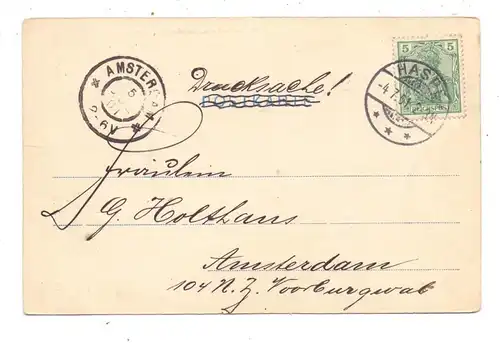 * AMSTERDAM *
5
2-6V
Drucksache!
POSTKARTE
5 5
HASPE
-4.7.01
* * *
Fräulein
G. Holthans
Amsterdam
104 N. Z. Voorburgwal